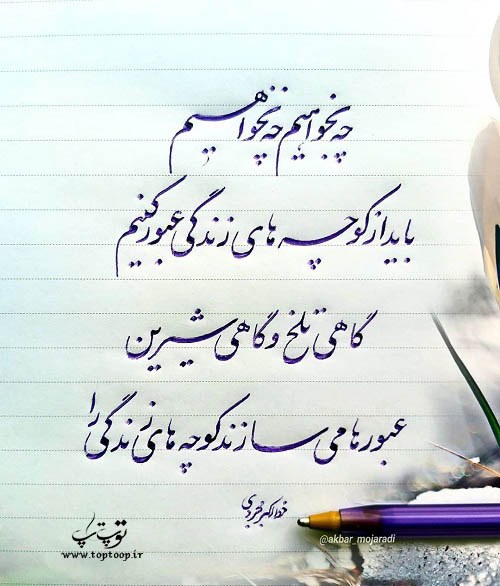 چه بخواهیم چه نخواهیم
باید از کوچه های زندگی عبور کنیم
گاهی تلخ و گاهی شیرین
عبورها می سازند کوچه های زندگی را
خط اکبر مجردی
@akbar_mojaradi
توپ تاپ
www.toptoop.ir